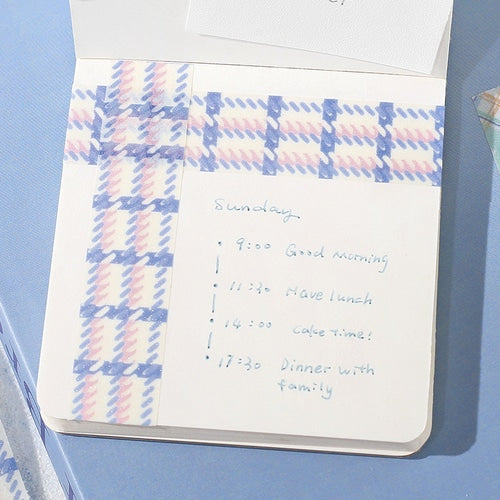 Sunday
9:00 Good Morning
11:30 Have lunch
14:00 cake time!
17:30 Dinner with
family